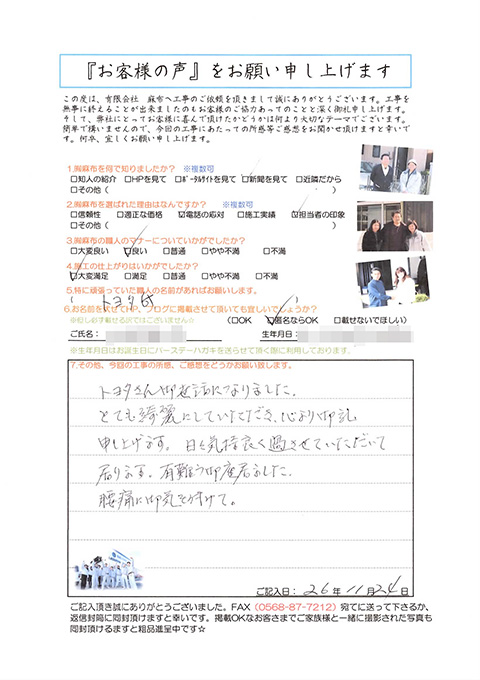 『お客様の声』をお願い申し上げます
この度は、有限会社 麻布へ工事のご依頼を頂きまして誠にありがとうございます。工事を
無事に終えることが出来ましたのもお客様のご協力あってのことと深く御礼申し上げます。
そして、弊社にとってお客様に喜んで頂けたかどうかは何より大切なテーマでございます。
簡単で構いませんので、今回の工事にあたっての所感等ご感想をお聞かせ頂けますと幸いで
す。何卒、宜しくお願い申し上げます。
1.㈲麻布を何で知りましたか? ※複数可
□知人の紹介 □HPを見て □ポータルサイトを見て □新聞を見て □近隣だから
□その他( )
2.㈲麻布を選ばれた理由はなんですか? ※複数可
□信頼性 □適正な価格 ☑電話の応対 □施工実績 ☑担当者の印象
□その他( )
3.㈲麻布の職人のマナーについていかがでしたか?
□大変良い ☑良い □普通 □やや不満 □不満
4.施工の仕上がりはいかがでしたか?
☑大変満足 □満足 □普通 □やや不満 □不満
5.特に頑張っていた職人の名前があればお願いします。
( トヨタ氏 )
6.お名前を伏せてHP、ブログに掲載させて頂いても宜しいでしょうか?
※但し必ず載せる訳ではございません☆ (□OK ☑匿名ならOK □載せないでほしい)
ご氏名: 生年月日:
※生年月日はお誕生日にバースデーハガキを送らせて頂く際に利用しております。
7.その他、今回の工事の所感、ご感想をどうかお願い致します。
トヨタさん御世話になりました。
とても綺麗にしていただき、心より御礼
申し上げます。日々気持良く過させていただいて
居ります。有難う御座居ました。
腰痛に御気を付けて。
ご記入日: 26年 11月 24日
ご記入頂き誠にありがとうございました。FAX(0568-87-7212)宛てに送って下さるか、
返信封筒に同封頂けますと幸いです。掲載OKなお客さまでご家族様と一緒に撮影された写真も
同封頂けるますと粗品進呈中です☆